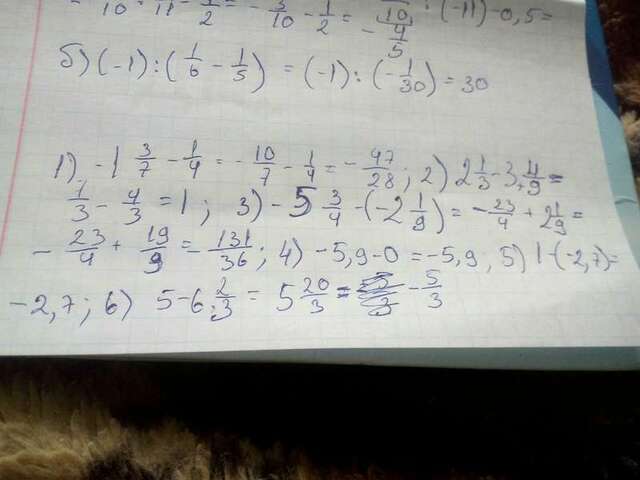 10 11 - 1/2 = - 3/10 - 1/2 = 10/(-4/5) : (-11) - 0,5 =
б) (-1) : (1/6 - 1/5) = (-1) : (-1/30) = 30
1) -1 3/7 - 1/4 = - 10/7 - 1/4 = - 47/28 ; 2) 2 1/3 - 3 4/9 =
7/3 - 4/3 = 1 ; 3) -5 3/4 - (-2 1/9) = - 23/4 + 2 1/9 =
- 23/4 + 19/9 = - 131/36 ; 4) -5,9 - 0 = -5,9 ; 5) 1 - (-2,7) =
-2,7 ; 6) 5 - 6 2/3 = 5 20/3 = - 5/3